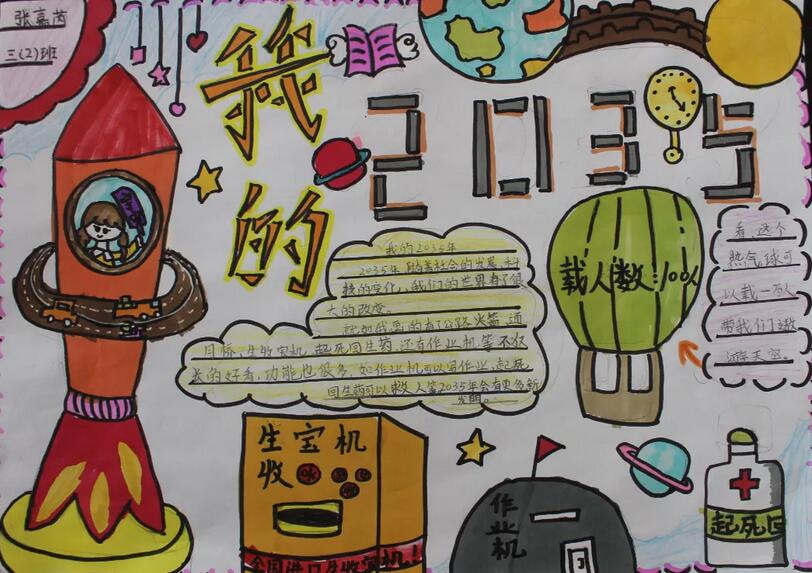 张嘉芮
三(2)班
我的
2035
我的2035年
2035年 随着社会的发展 科
技的变化,我们的世界有了很
大的改变。
就如我画的有了公路火箭 通
目标,生收宝机,起死回生药 还有作业机等不仅
长的好看,功能也很多,如作业机可以写作业,起死
回生药可以救人等2035年会有更多新
发明。
载人数:100人
看,这个
热气球可
以载一百人
带我们遨
游天空.
生宝机
收
全国进口生收宝机!
作业机
起死回